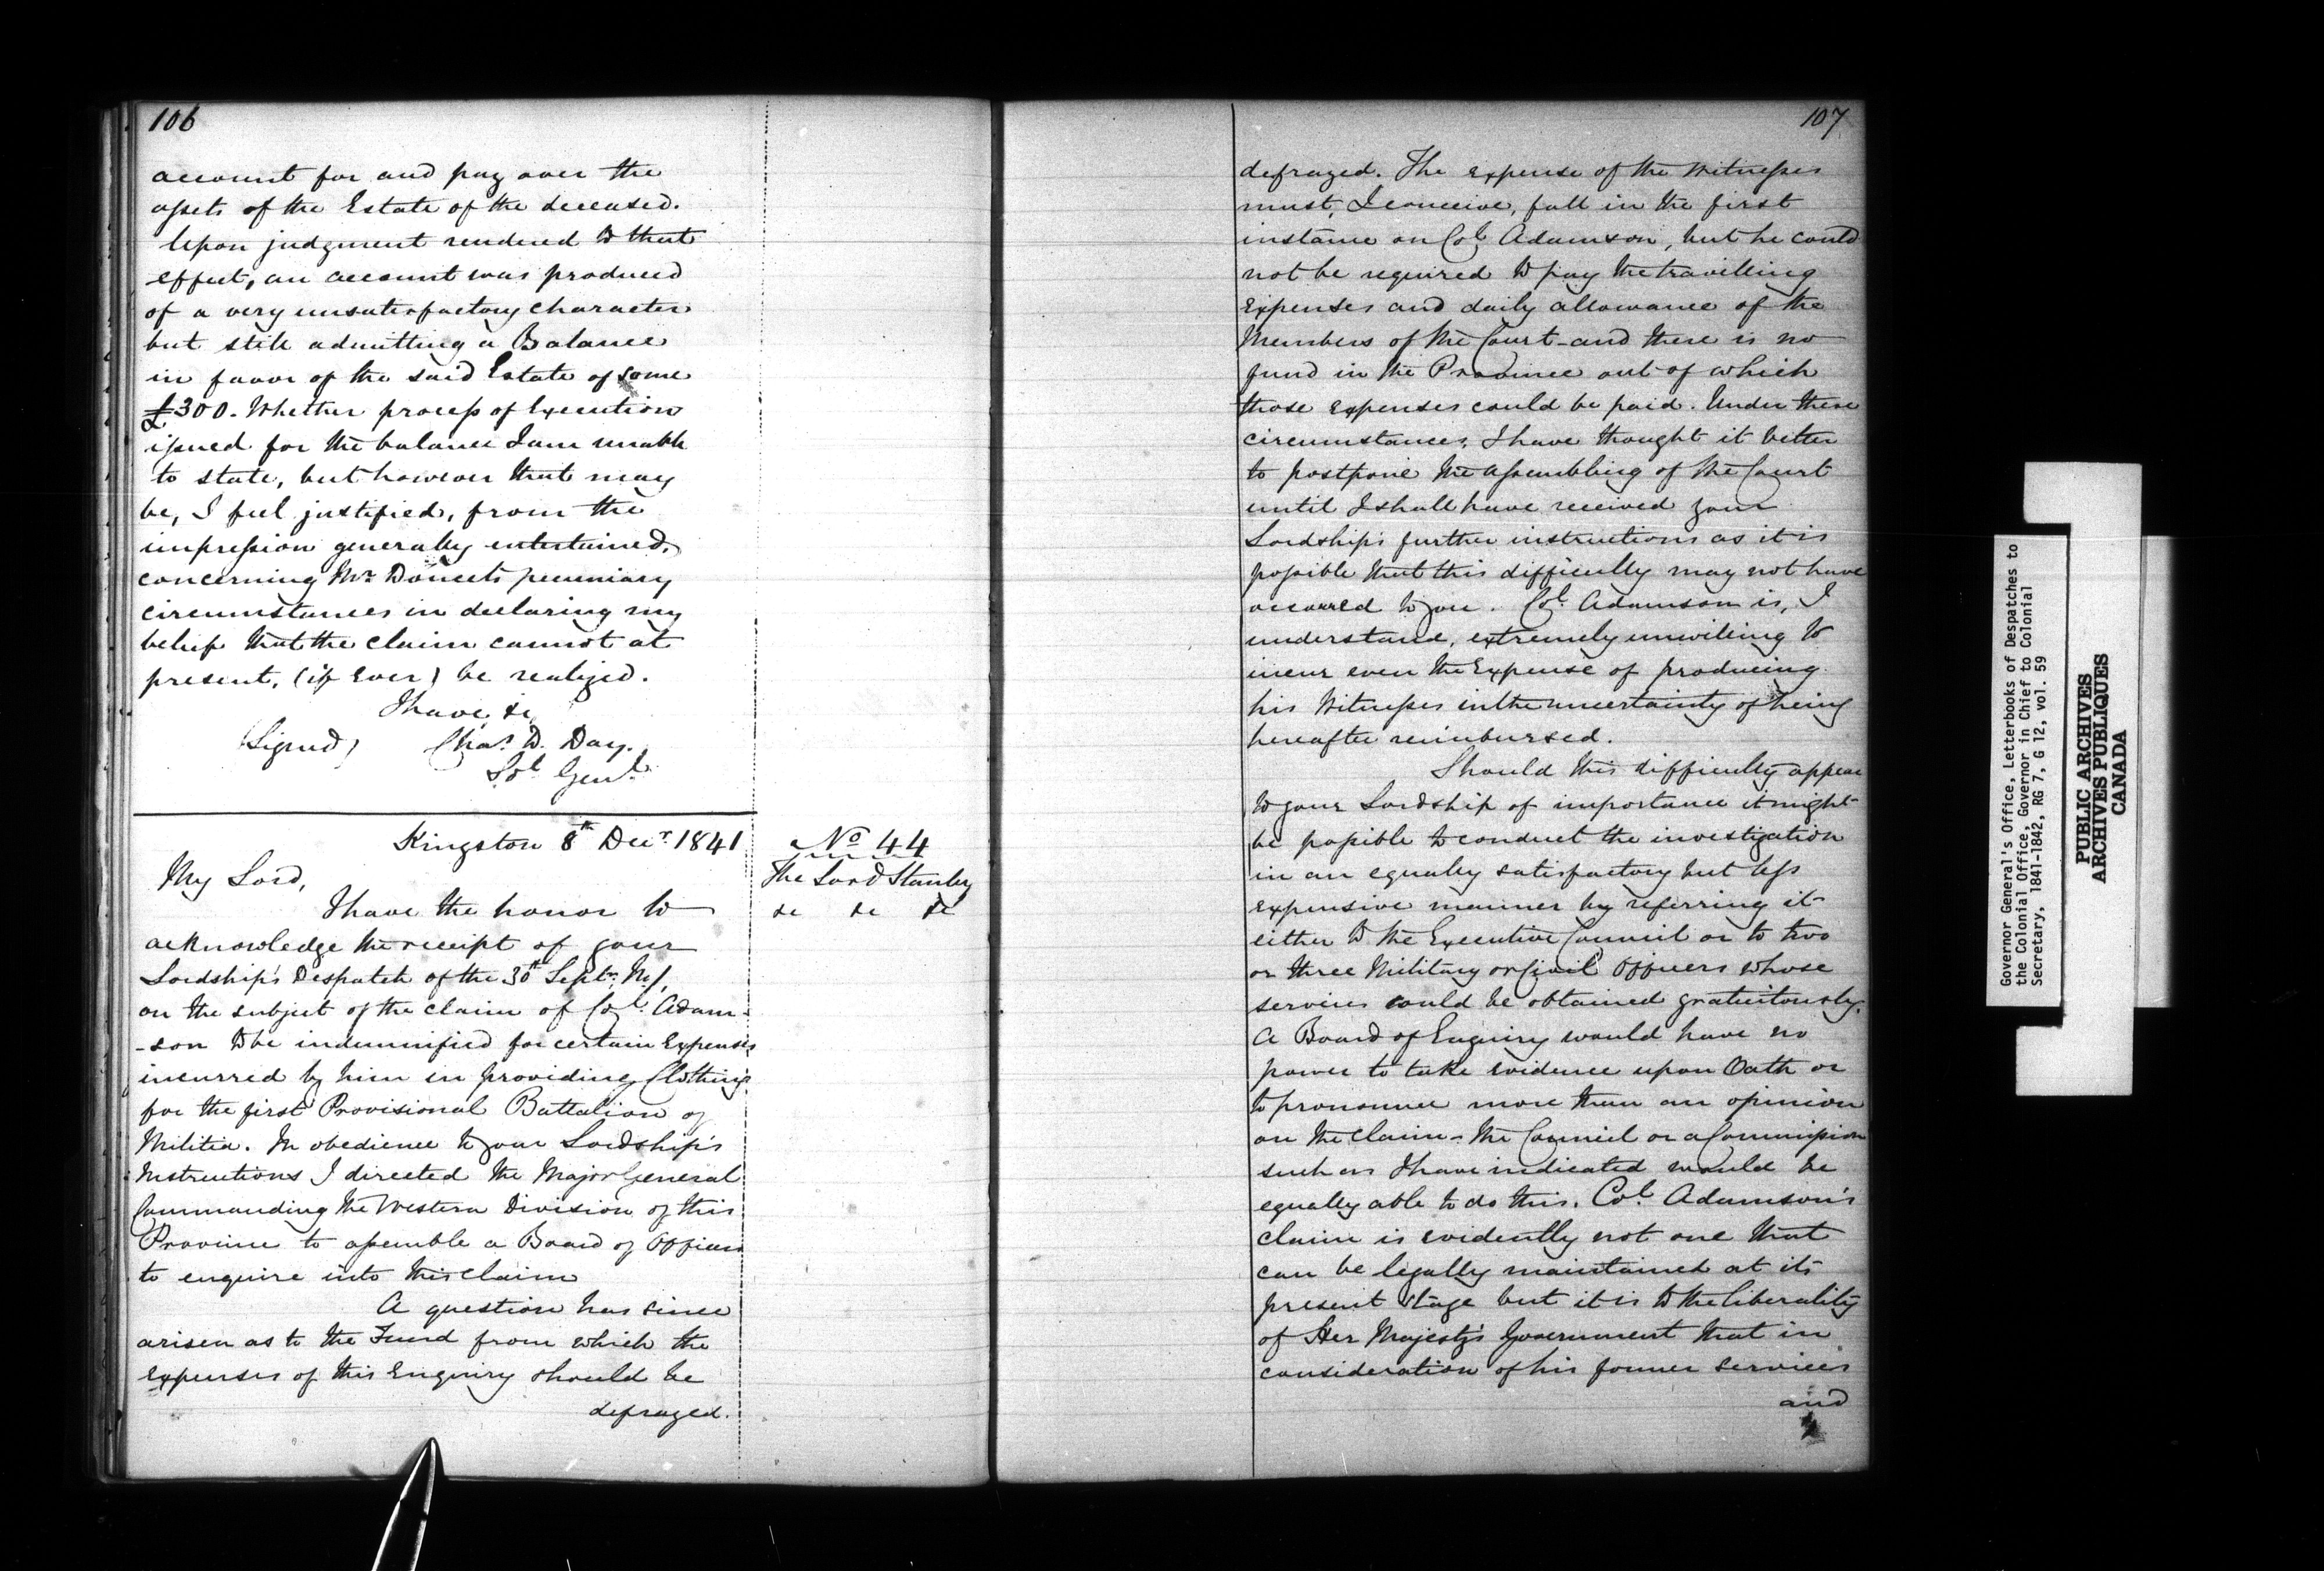 106
account for and pay over the
assets of the Estate of the deceased.
Upon judgment rendered to that
effect, an account was produced
of a very unsatisfactory character
but still admitting a Balance
in favor of the said Estate of some
£300. Whether process of Execution
issued for the balance I am unable
to state, but however that may
be, I feel justified, from the
impression generally entertained,
concerning Mr. Doucets pecuniary
circumstances in declaring my
belief that the claim cannot at
present, (if Ever) be realized.
I have &c
(Signed) Chas. D. Day.
Sol. Genl.
Kingston 8th Decr. 1841
No 44
The Lord Stanley
&c &c &c
My Lord,
I have the honor to
acknowledge the receipt of your
Lordship's Despatch of the 30th Septr. No 1,
on the subject of the claim of Col. Adam-
-son to be indemnified for certain Expenses
incurred by him in providing Clothing
for the first Provisional Battalion of
Militia. In obedience to your Lordship's
Instructions I directed the Major General
Commanding the Western Division of this
Province to assemble a Board of Officers
to enquire into this claim
A question has since
arisen as to the Fund from which the
expenses of this Enquiry should be
defrayed.
107
defrayed. The expense of the Witnesses
must, I conceive, fall in the first
instance on Col. Adamson, but he could
not be required to pay the travelling
Expenses and daily allowance of the
Members of the Court - and there is no
fund in the Province out of which
those expenses could be paid. Under these
circumstances, I have thought it better
to postpone the assembling of the Court
until I shall have received your
Lordship's further instructions as it is
possible that this difficulty may not have
occurred to you. Col. Adamson is, I
understand, extremely unwilling to
incur even the Expense of producing
his Witnesses in the uncertainty of being
hereafter reimbursed.
Should this difficulty appear
to your Lordship of importance it might
be possible to conduct the investigation
in an equally satisfactory but less
expensive manner by referring it
either to the Executive Council or to two
or three Military or Civil Officers whose
services could be obtained gratuitously.
A Board of Enquiry would have no
power to take evidence upon Oath or
to pronounce more than an opinion
on the claim - the Council or a Commission
such as I have indicated would be
equally able to do this. Col. Adamson's
claim is evidently not one that
can be legally maintained at its
present stage but it is to the liberality
of Her Majesty's Government that in
consideration of his former services
and
Governor General's Office, Letterbooks of Despatches to
the Colonial Office, Governor in Chief to Colonial
Secretary, 1841-1842, RG 7, G 12, vol. 59
PUBLIC ARCHIVES
ARCHIVES PUBLIQUES
CANADA